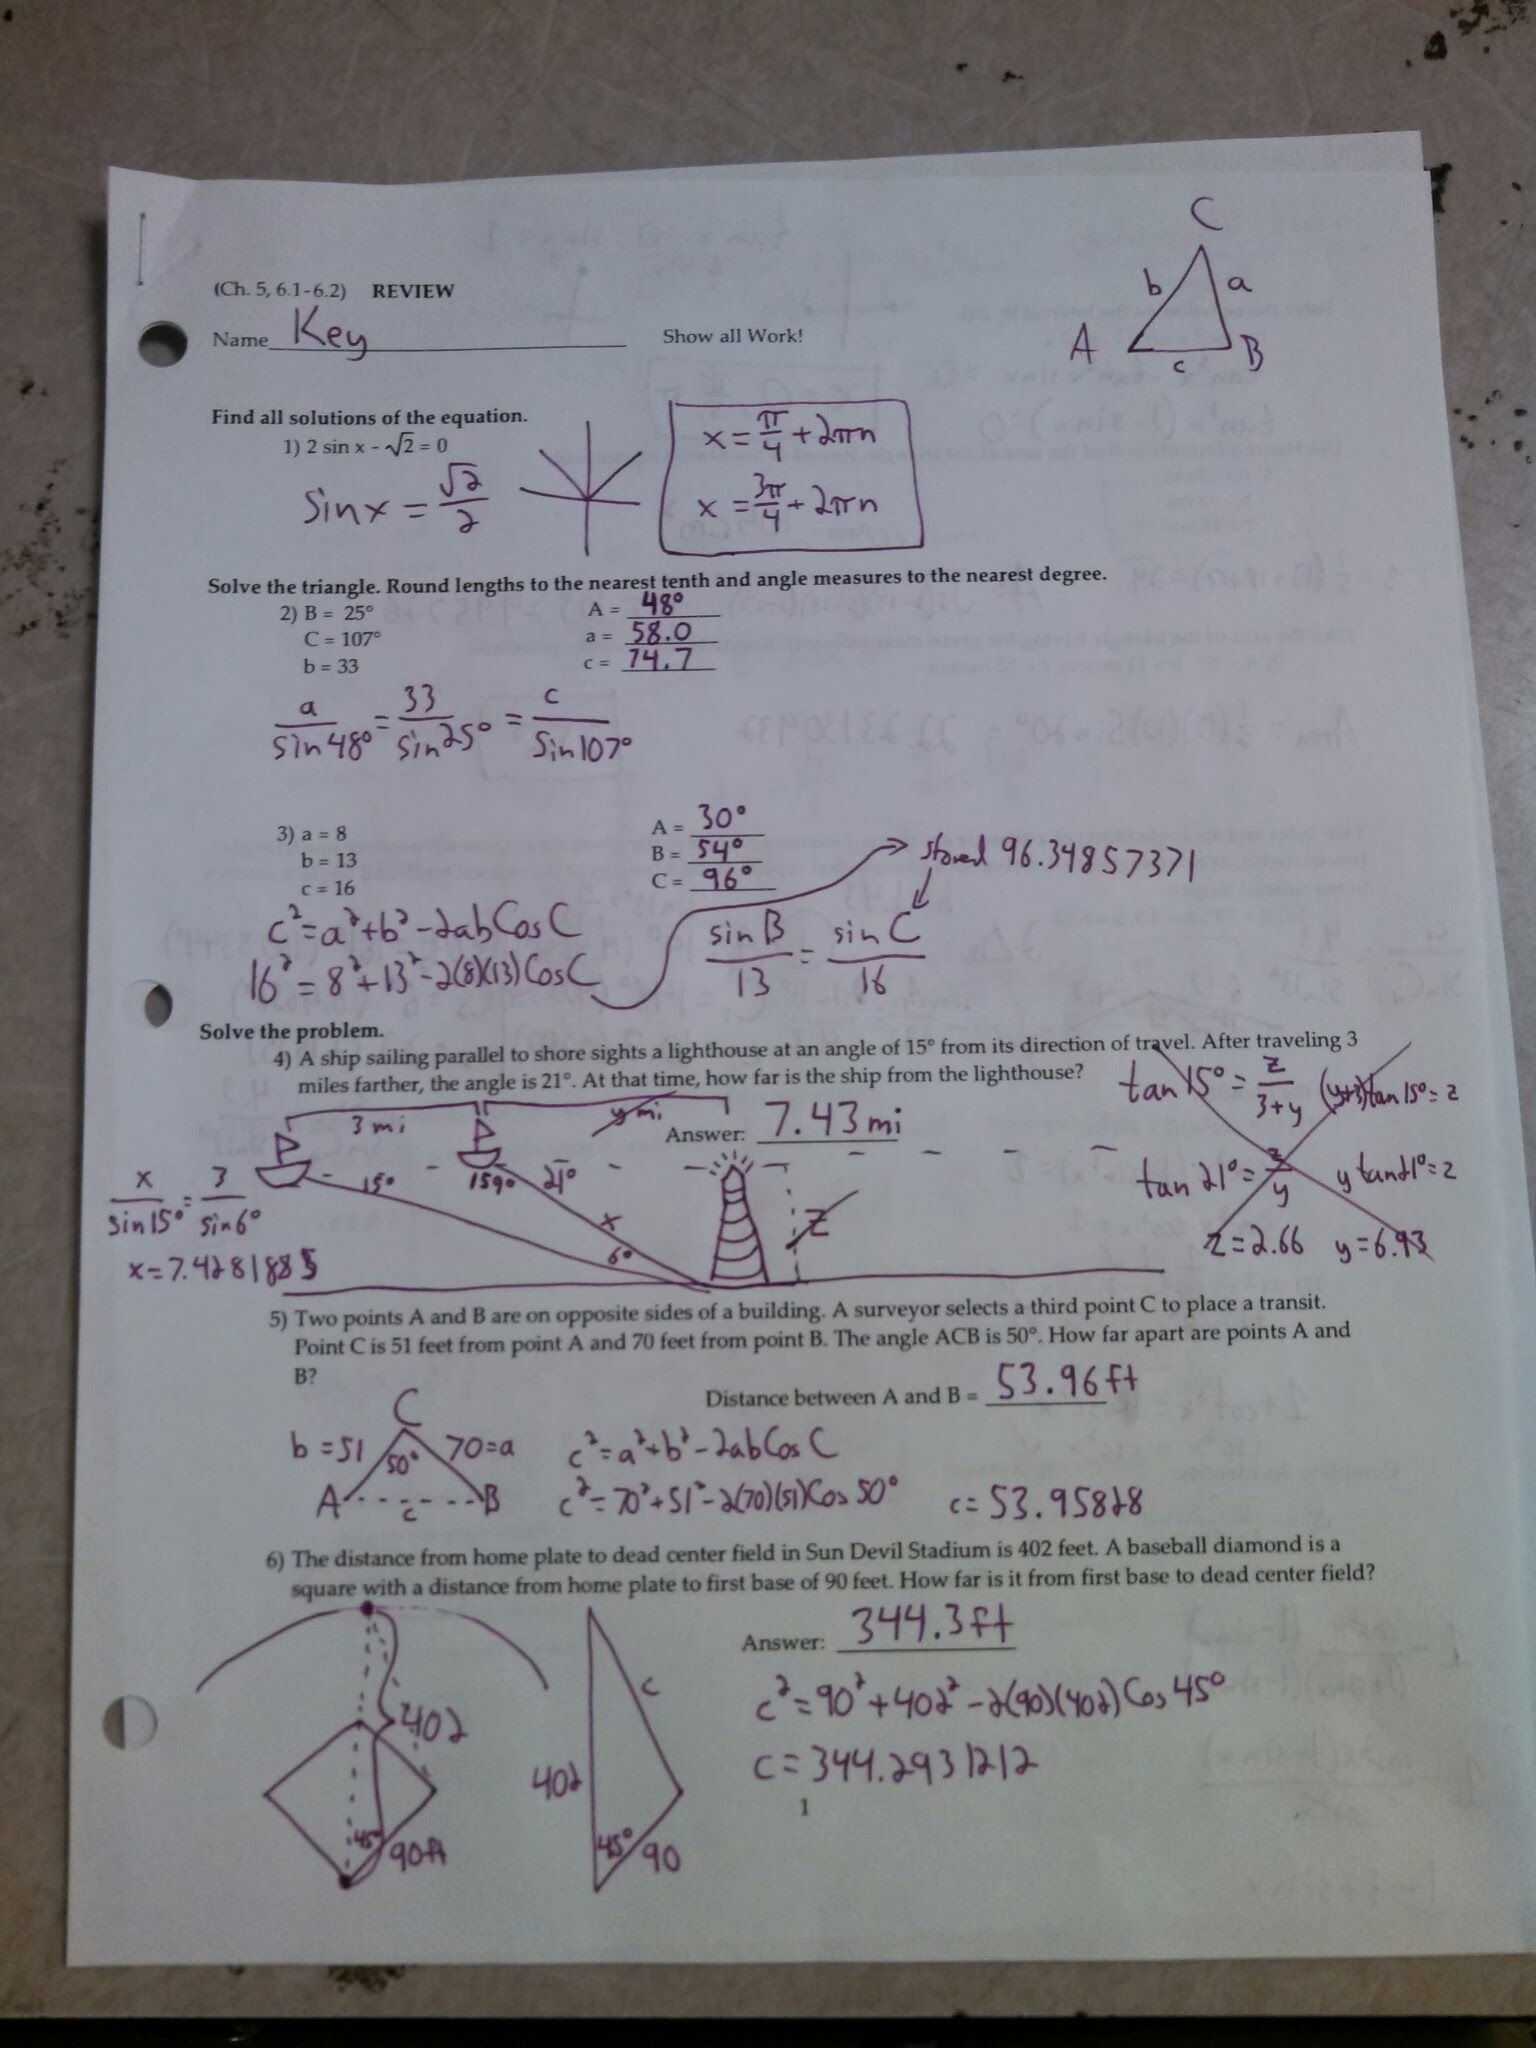 C
b a
A c B
(Ch. 5, 6.1-6.2) REVIEW
Name Key Show all Work!
Find all solutions of the equation.
1) 2 sin x - √2 = 0
sin x = √2/2
x = π/4 + 2πn
x = 3π/4 + 2πn
Solve the triangle. Round lengths to the nearest tenth and angle measures to the nearest degree.
2) B = 25° A = 48°
C = 107° a = 58.0
b = 33 c = 74.7
a/sin 48° = 33/sin 25° = c/sin 107°
3) a = 8 A = 30°
b = 13 B = 54°
c = 16 C = 96°
stored 96.34857371
c² = a² + b² - 2ab Cos C
16² = 8² + 13² - 2(8)(13) Cos C
sin B/13 = sin C/16
Solve the problem.
4) A ship sailing parallel to shore sights a lighthouse at an angle of 15° from its direction of travel. After traveling 3
miles farther, the angle is 21°. At that time, how far is the ship from the lighthouse?
tan 15° = z/3+y (y+3)tan 15° = z
3 mi y mi Answer: 7.43 mi
15° 159° 21°
x/sin 15° = 3/sin 6°
tan 21° = z/y y tan 21° = z
x z
6°
x = 7.42818885
z = 2.66 y = 6.93
5) Two points A and B are on opposite sides of a building. A surveyor selects a third point C to place a transit.
Point C is 51 feet from point A and 70 feet from point B. The angle ACB is 50°. How far apart are points A and
B?
Distance between A and B = 53.96 ft
C
b = 51 50° 70 = a
A c B
c² = a² + b² - 2ab Cos C
c² = 70² + 51² - 2(70)(51) Cos 50° c = 53.95828
6) The distance from home plate to dead center field in Sun Devil Stadium is 402 feet. A baseball diamond is a
square with a distance from home plate to first base of 90 feet. How far is it from first base to dead center field?
Answer: 344.3 ft
c² = 90² + 402² - 2(90)(402) Cos 45°
c = 344.2931212
402
45° 90 ft
c
402
45° 90
1